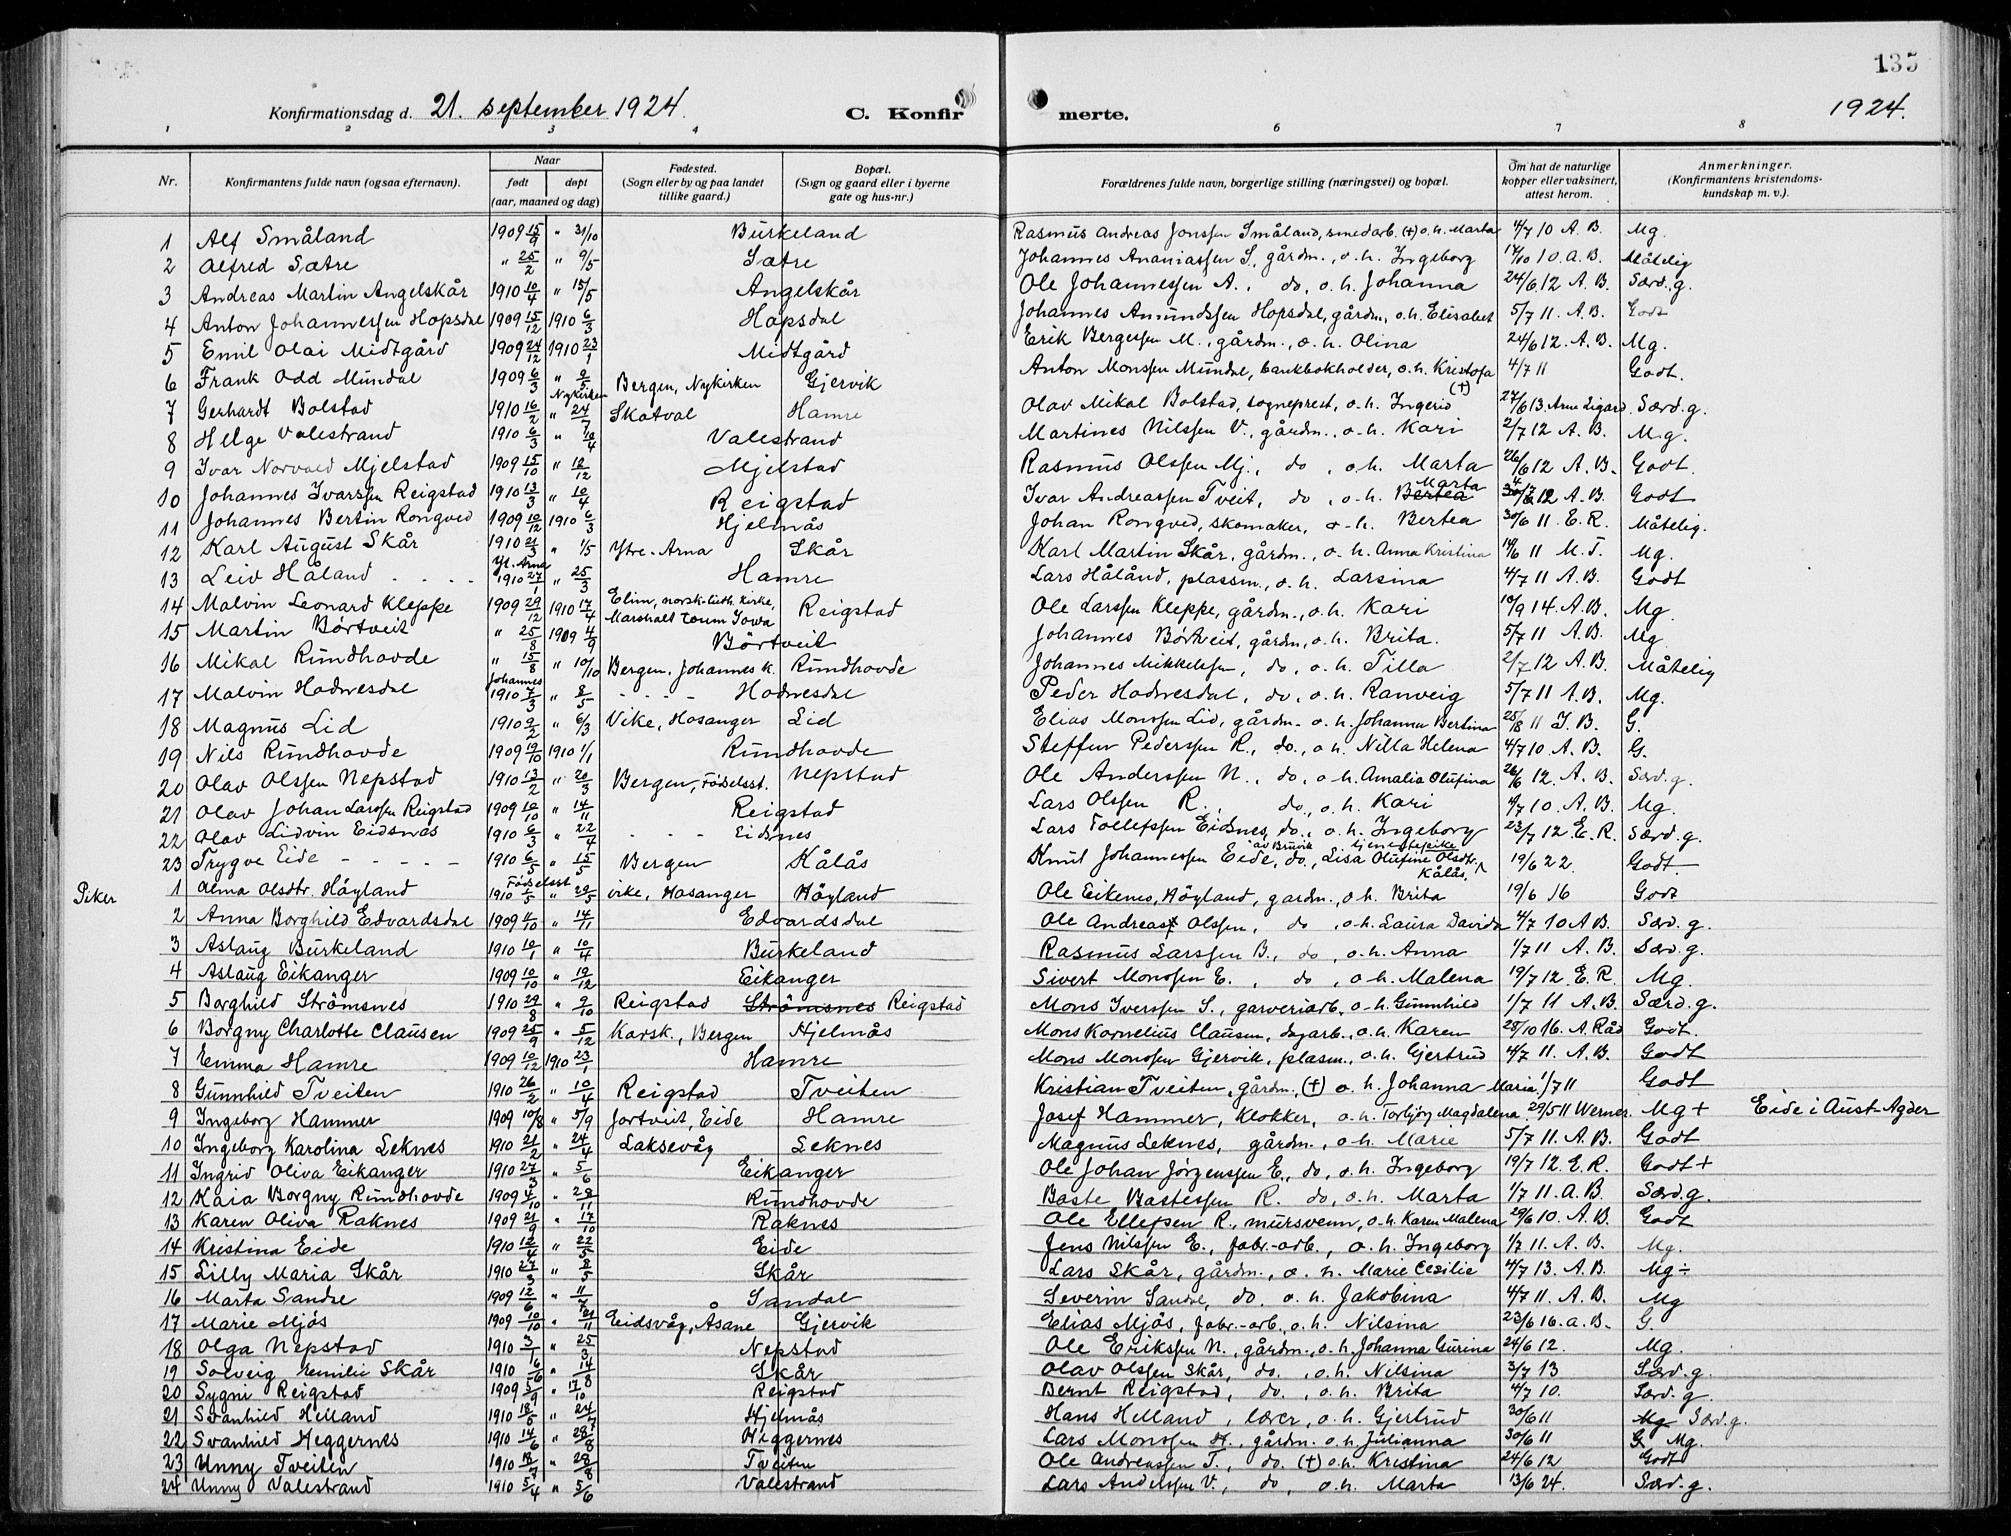 135
Konfirmationsdag d. 21. september 1924.
C. Konfirmerte.
1924.
1 2 3 4 6 7 8
Nr. Konfirmantens fulde navn (ogsaa efternavn). Naar født døpt (aar, maaned og dag) Fødested. (Sogn eller by og paa landet tillike gaard.) Bopæl. (Sogn og gaard eller i byerne gate og hus-nr.) Forældrenes fulde navn, borgerlige stilling (næringsvei) og bopæl. Om hat de naturlige kopper eller vaksinert, attest herom. Anmerkninger. (Konfirmantens kristendoms-kundskap m. v.).
1 Alf Småland 1909 15/9 " 31/10 Burkeland Rasmus Andreas Jonssen Småland, smedarb. (+) o. h. Marta 4/7 10 A. B. Mg.
2 Alfred Sætre " 25/2 " 9/5 Sætre Johannes Ananiassen S., gårdm., o. h. Ingeborg 14/10 10. A. B. Måtelig
3 Andreas Martin Angelskår 1910 10/4 " 15/5 Angelskår Ole Johannessen A., do, o. h. Johanna 24/6 12 A. B. Særd. g.
4 Anton Johannessen Hopsdal 1909 15/12 1910 6/3 Hopsdal Johannes Amundssen Hopsdal, gårdm., o. h. Elisabet 5/7 11. A. B. Godt
5 Emil Olai Midtgård 1909 24/12 1910 23/1 Midtgård Erik Bergessen M., gårdm., o. h. Olina 24/6 12. A. B. Mg.
6 Frank Odd Mundal 1909 6/3 " 9/5 Nykirken Bergen, Nykirken Gjervik Anton Monssen Mundal, bankbokholder, o. h. Kristofa (+) 4/7 11 Godt.
7 Gerhardt Bolstad 1910 16/2 " 24/7 Skatval Hamre Olav Mikal Bolstad, sogneprest, o. h. Ingerid 27/6 13. Arne Ligard. Særd. g.
8 Helge Valestrand 1910 6/3 " 10/4 Valestrand Martines Nilssen V., gårdm., o. h. Kari 2/7 12 A. B. M.g.
9 Ivar Norvald Mjelstad 1909 15/10 " 12/12 Mjelstad Rasmus Olssen Mj., do, o. h. Marta 26/6 12 A. B. Godt.
10 Johannes Ivarssen Reigstad 1910 13/3 " 10/4 Reigstad Ivar Andreassen Tveit, do, o. h. Bertea Marta 4/7 12 A. B. Godt
11 Johannes Bertin Rongved 1909 10/12 1910 6/3 Hjelmås Johan Rongved, skomaker, o. h. Bertea 30/6 11. E. R. Måtelig.
12 Karl August Skår 1910 21/3 " 1/5 Ytre-Arna Skår Karl Martin Skår, gårdm., o. h. Anna Kristina 14/6 11 M. T. Mg.
13 Leiv Håland . . . . Yt. Arna 1910 27/1 " 25/3 Hamre Lars Håland, plassm., o. h. Larsina 4/7 11 A. B. Godt
14 Malvin Leonard Kleppe 1909 29/12 1910 17/4 Elim, norsk-luth. kirke, Marshall County Iowa Reigstad Ole Larssen Kleppe, gårdm., o. h. Kari 10/9 14. A. B. Mg.
15 Martin Børtveit " 25/8 1909 4/9 Børtveit Johannes Børtveit, gårdm., o. h. Brita. 5/7 11 A. B. Mg
16 Mikal Rundhovde " 15/8 " 10/10 Bergen, Johannes k. Rundhovde Johannes Mikkelssen, do, o. h. Tilla 2/7 12 A. B. Måtelig
17 Malvin Hodnesdal Johannes 1910 7/3 " 8/5 - - - - Hodnesdal Peder Hodnesdal, do, o. h. Ranveig 5/7 11 A. B. Mg.
18 Magnus Lid 1910 9/2 " 6/3 Vike, Hosanger Lid Elias Monssen Lid, gårdm. o. h. Johanna Bertina 25/8 11 I. B. G.
19 Nils Rundhovde 1909 19/10 1910 1/1 Rundhovde Steffen Pederssen R., do., o. h. Nilla Helena 4/7 10 A. B. G.
20 Olav Olssen Nepstad 1910 13/2 " 20/3 Bergen, Fødselsst. Nepstad Ole Anderssen N., do, o. h. Amalia Olufina 26/6 12. A. B. Særd. g.
21 Olav Johan Larssen Reigstad 1909 10/10 " 14/11 Reigstad Lars Olssen R., do., o. h. Kari 4/7 10. A. B. Mg.
22 Olav Lidvin Eidsnes 1910 6/3 " 22/4 - - - Eidsnes Lars Tollefssen Eidsnes, do., o. h. Ingeborg 23/7 12 E. R. Særd. g.
23 Trygve Eide - - - - - 1910 6/5 " 15/5 Bergen Kålås Knut Johannessen Eide, av Bruvik do, Lisa Olufine Olsdtr. tjenestepike Kålås. 19/6 22. Godt.
Piker
1 Alma Olsdtr. Höyland 1910 1/5 Fødselsst " 29/5 vike, Hosanger Höyland Ole Eikenes, Höyland, gardm., o h. Brita 19/6 16 Godt
2 Anna Borghild Edvardsdal 1909 4/10 " 14/11 Edvardsdal Ole Andreas Olssen, do, o. h. Laura Davida 4/7 10 A B. Særd. g.
3 Aslaug Burkeland 1910 10/1 " 10/4 Burkeland Rasmus Larssen B., do, o. h. Anna 1/7 11 A. B. Særd. g.
4 Aslaug Eikanger 1909 10/10 " 19/12 Eikanger Sivert Monssen E., do, o h. Malena 19/7 12 E. R. Mg.
5 Borghild Strömsnes 1910 29/8 " 9/10 Reigstad Strömsnes Reigstad Mons Iverssen S., garveriarb., o. h. Gunnhild 1/7 11 A. B. Særd. g.
6 Borgny Charlotte Clausen 1909 25/9 " 5/12 Korsk., Bergen Hjelmås Mons Kornelius Clausen, dagarb., o. h. Karen 28/10 16. A. Råd Godt.
7 Emma Hamre 1909 10/12 1910 23/1 Hamre Mons Monssen Gjervik, plasm., o. h. Gjertrud 4/7 11. A. B. Godt
8 Gunnhild Tveiten 1910 26/2 " 10/4 Reigstad Tveiten Kristian Tveiten, gårdm. (+) o. h. Johanna Maria 1/7 11 Godt
9 Ingeborg Hammer 1909 10/8 " 5/9 Jortveit, Eide Hamre Josef Hammer, klokker, o. h. Torbjörg Magdalena 29/5 11 Werner. Mg + Eide i Aust-Agder
10 Ingeborg Karolina Leknes 1910 21/2 " 24/4 Laksevåg Leknes Magnus Leknes, gårdm., o. h. Marie 5/7 11. A. B. Godt
11 Ingrid Oliva Eikanger 1910 27/3 " 5/6 Eikanger Ole Johan Jörgenssen E., do, o. h. Ingeborg 19/7 12. E. R. Godt +
12 Kaia Borgny Rundhovde 1909 4/10 " 28/11 Rundhovde Baste Bastessen R. do, o. h. Marta 1/7 11. A. B. Særd. g.
13 Karen Oliva Raknes 1909 21/9 " 17/10 Raknes Ole Ellefsen R., mursvenn, o. h. Karen Malena 29/6 10. A. B. Godt
14 Kristina Eide 1910 12/4 " 22/5 Eide Jens Nilssen E., fabr.-arb., o. h. Ingeborg 1/7 11. A. B. Mg.
15 Lilly Maria Skår 1910 27/3 " 8/5 Skår Lars Skår, gårdm., o. h. Marie Cesilie 4/7 13. A. B. Mg ÷
16 Marta Sandal 1909 12/6 " 11/7 Sandal Severin Sandal, do. o. h. Jakobina 4/7 11. A. B. Mg
17 Marie Mjös 1909 10/10 " 21/11 Eidsvåg, Åsane Gjervik Elias Mjös, fabr.-arb., o. h. Nilsina 23/6 16. A. B. G.
18 Olga Nepstad 1910 3/1 " 25/3 Nepstad Ole Erikssen N., gårdm., o. h. Johanna Gurina 24/6 12. Mg.
19 Solveig Emilie Skår 1910 16/6 " 14/8 Skår Olav Olssen Skår, do., o. h. Nilsina 3/7 13 Særd. g.
20 Sygni Reigstad 1909 5/9 " 17/10 Reigstad Bernt Reigstad, do, o. h. Brita 4/7 10. Særd. g.
21 Svanhild Helland 1910 18/5 " 24/7 Hjelmås Hans Helland, lærer, o. h. Gjertrud 30/6 11 Mg Særd. g.
22 Svanhild Heggernes 1910 14/6 " 28/8 Heggernes Lars Monssen H., gårdm. o. h. Julianna 30/6 11 G Mg.
23 Unny Tveiten 1910 18/7 " 28/8 Tveiten Ole Andreassen T., do. (+) o. h. Kristina 24/6 12 Godt
24 Unny Valestrand 1910 5/4 " 5/6 Valestrand Lars Anderssen V., do, o. h. Marta 13/6 24. Særd. g.